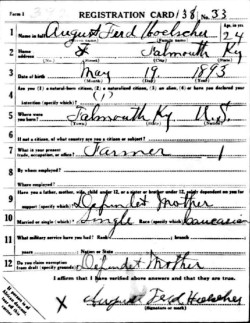 Form 1
REGISTRATION CARD 138 No. 33
1 Name in full August Ferd Hoelscher Age, in yrs. 24
2 Home address F Falmouth Ky
3 Date of birth May 19 1893
4 Are you (1) a natural-born citizen, (2) a naturalized citizen, (3) an alien, (4) or have you declared your intention (specify which)? (1)
5 Where were you born? Falmouth Ky. U.S.
6 If not a citizen, of what country are you a citizen or subject?
7 What is your present trade, occupation, or office? Farmer
8 By whom employed?
Where employed?
9 Have you a father, mother, wife, child under 12, or a sister or brother under 12, solely dependent on you for support (specify which)? Defindet Mother
10 Married or single (which)? Single Race (specify which)? Caucasian
11 What military service have you had? Rank branch
years Nation or State
12 Do you claim exemption from draft (specify grounds)? Defindet Mother
I affirm that I have verified above answers and that they are true.
X August Ferd Hoelscher
(Signature or mark)